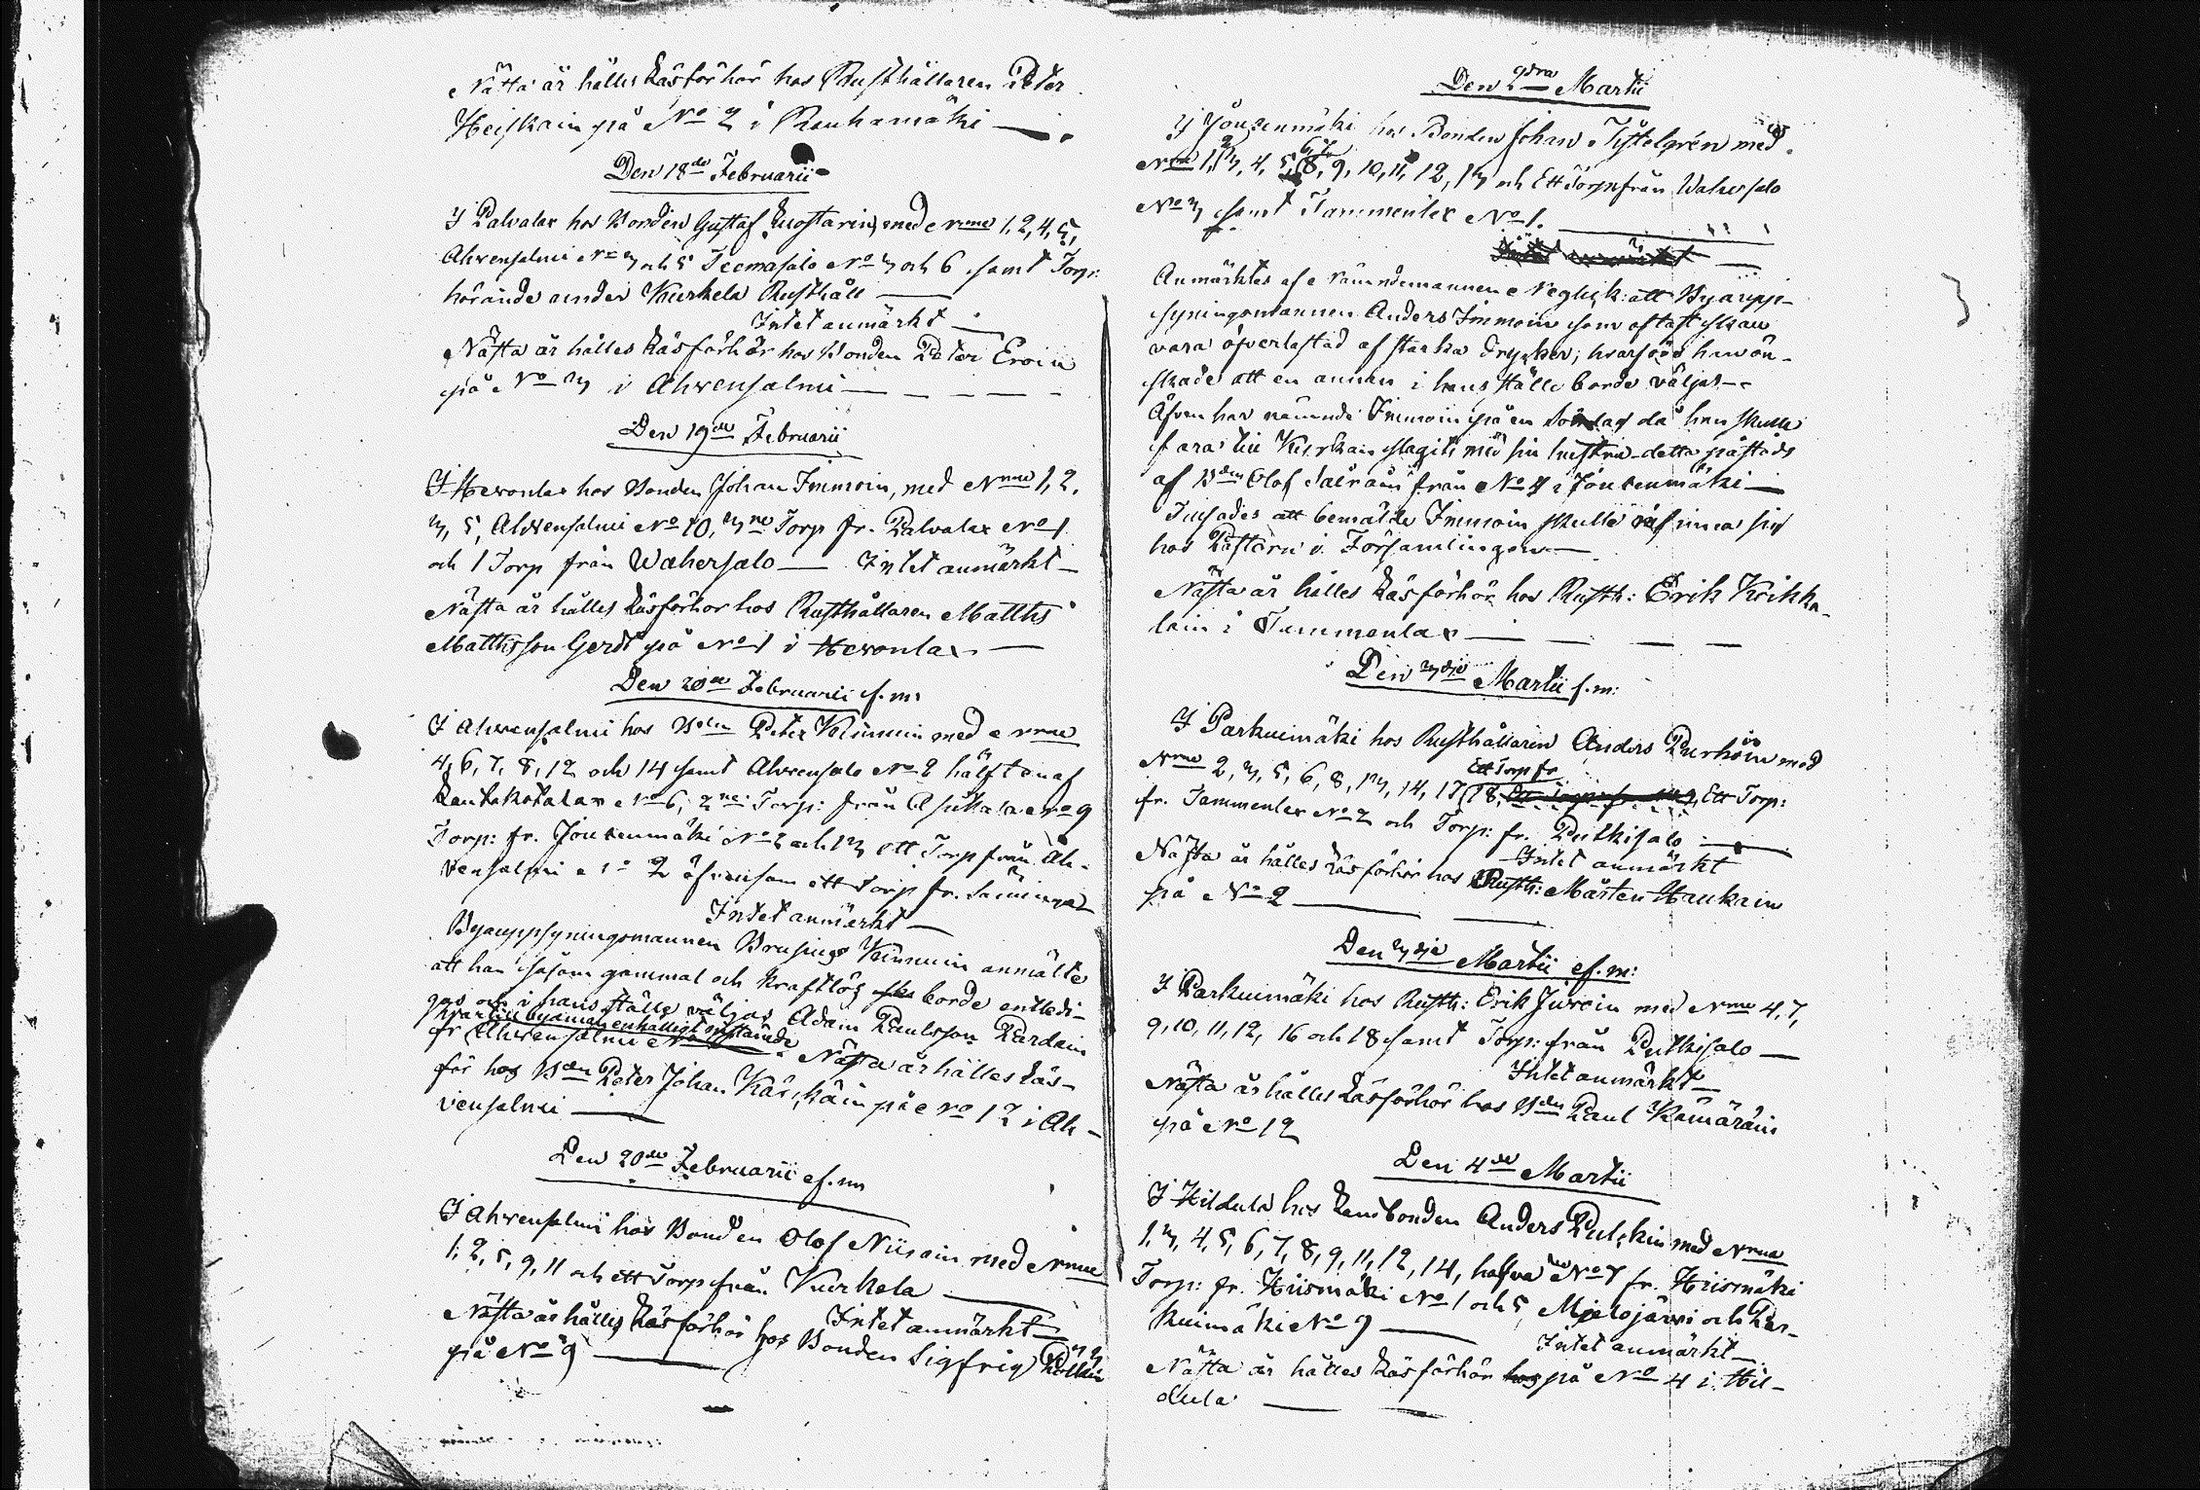 Nästa år hålles Läsförhör hos Rusthållaren Peter
Heiskain på No 2 i Rauhamäki
Den 18de Februarii
I Palvalax hos Bonden Gustaf Kuostarin, med Nrne 1, 2, 4, 5,
Ahvensalmi No 3 och 5 Teemasalo No 3 och 6 samt Torp:
hörande under Kurkela Rusthåll
Intet anmärkt
Nästa år hålles Läsförhör hos Bonden Peter Eroin
på No 3 i Ahvensalmi
Den 19de Februarii
I Hevonlax hos Bonden Johan Immoin, med Nrne 1, 2,
3, 5, Ahvensalmi No 10, 3ne Torp fr. Palvalax No 1
och 1 Torp från Wahersalo — Intet anmärkt
Nästa år hålles Läsförhör hos Rusthållaren Matths
Matthsson Gerdt på No 1 i Hevonlax
Den 20de Februarii f.m:
I Ahvensalmi hos Bden Peter Väinnin med Nrne
4, 6, 7, 8, 12 och 14 samt Ahvensalo No 2 hälften af
Lautakotalax No 6, 2ne Torp: från Asukala No 9
Torp: fr. Joukenmäki No 2 och 13 ett Torp från Ah-
vensalmi No 2 äfvensom ett Torp fr. Sääminge
Intet anmärkt
Byauppsyningsmannen Brusius Väinnin anmälte
att han såsom gammal och kraftlös borde entledi-
gas och i hans ställe väljas Adam Paulsson Pardain
hvartill byamän enhälligt
fr Ahvensalmi No Nästa år hålles Läs-
för hos Bden Peter Johan Kärkäin på No 12 i Ah-
vensalmi
Den 20de Februarii ef.m
I Ahvensalmi hos Bonden Olof Niirain med Nrne
1, 2, 5, 9, 11 och ett Torp från Kurkela
Intet anmärkt
Nästa år hålles Läsförhör hos Bonden Sigfrid
på No 9
Den 2dra Martii
I Joukenmäki hos Bonden Johan Tistelgrén med
Nrne 1, 2, 3, 4, 5, 6, 7, 8, 9, 10, 11, 12, 13 och Ett Torp från Wahersalo
No 3 samt Tammenlax No 1.
Anmärktes af Nämndemannen att Byaupp-
syningsmannen Anders Immoin som oftast skall
vara öfverlastad af starka drycker; hvarföre han ön-
skade att en annan i hans ställe borde väljas
Äfven har nämnde Immoin på en Söndag då han skulle
fara till Kyrkan slagits med sin hustru detta påstods
af Bden Olof från No 4 i Joukenmäki
bemälde Immoin skulle infinna sig
hos Pastorn i Församlingen
Nästa år hålles Läsförhör hos Rusth: Erik Krikku-
lain i Tammenlax
Den 3dje Martii f.m:
I Parkuinmäki hos Rusthållaren Anders Purhoin med
Nrne 2, 3, 5, 6, 8, 13, 14, 17, 18, Ett Torp fr Ett Torp:
fr. Tammenlax No 2 och Torp: fr. Putkisalo
Intet anmärkt
Nästa år hålles Läsförhör hos Rusth: Mårten Haukain
på No 2
Den 3dje Martii ef.m:
I Parkuinmäki hos Rusth: Erik Juvoin med Nrne 4, 7,
9, 10, 11, 12, 16 och 18 samt Torp: från Putkisalo
Intet anmärkt
Nästa år hålles Läsförhör hos Bden Paul Kämäräin
på No 12
Den 4de Martii
I Hildula hos Landbonden Anders Pulkin med Nrne
1, 3, 4, 5, 6, 7, 8, 9, 11, 12, 14, halfva No 7 fr. Hiismäki
Torp: fr. Hiismäki No 1 och 5, Mielojärvi och Par-
kuimäki No 9
Intet anmärkt
Nästa år hålles Läsförhör hos på No 4 i Hil-
dula